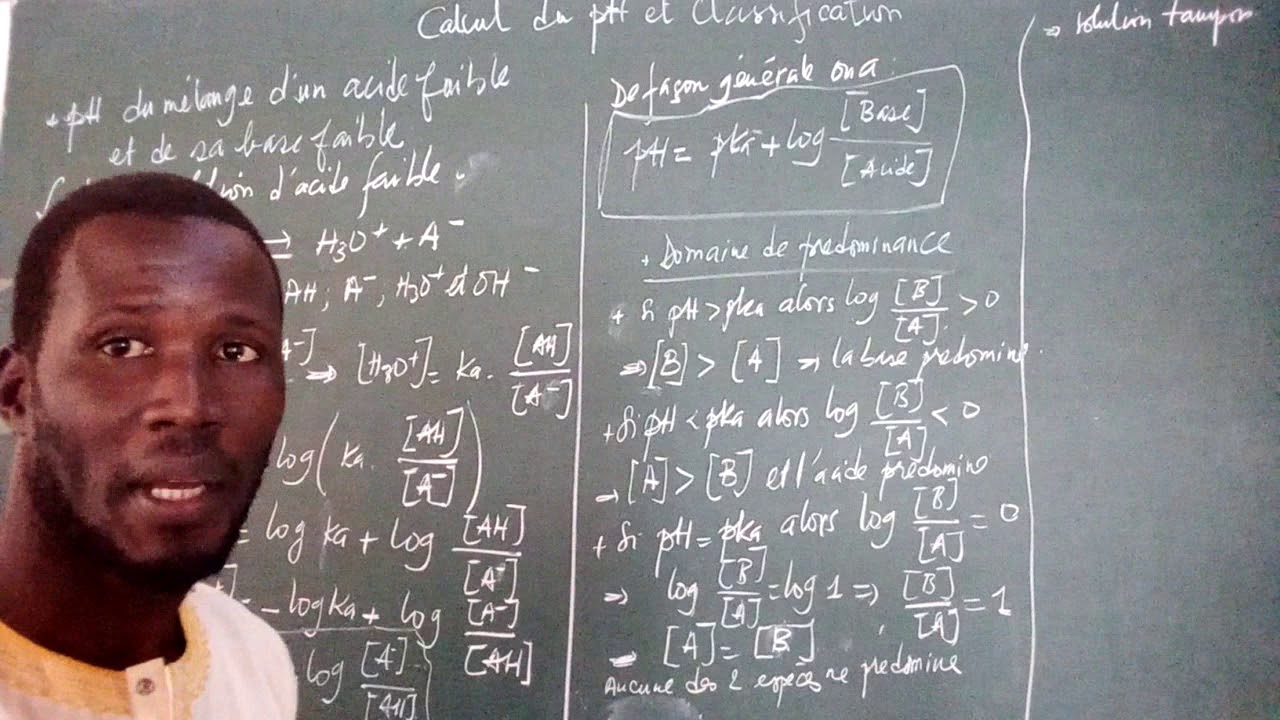 Calcul du pH et Classification
+ pH du mélange d'un acide faible
et de sa base faible
d'acide faible.
⇒ H₃O⁺ + A⁻
AH; A⁻, H₃O⁺ et OH⁻
A⁻] ⇒ [H₃O⁺] = Ka. [AH]/[A⁻]
log(Ka. [AH]/[A⁻])
= log Ka + log [AH]/[A⁻]
= -log Ka + log [A⁻]/[AH]
log [A⁻]/[AH]
De façon générale on a
pH = pKa + log [Base]/[Acide]
+ Domaine de predominance
+ Si pH > pka alors log [B]/[A] > 0
⇒ [B] > [A] ⇒ la base predomine.
+ Si pH < pka alors log [B]/[A] < 0
⇒ [A] > [B] et l'acide prédomine
+ Si pH = pka alors log [B]/[A] = 0
⇒ log [B]/[A] = log 1 ⇒ [B]/[A] = 1
⇒ [A] = [B]
Aucune des 2 espèces ne predomine
⇒ solution tampon